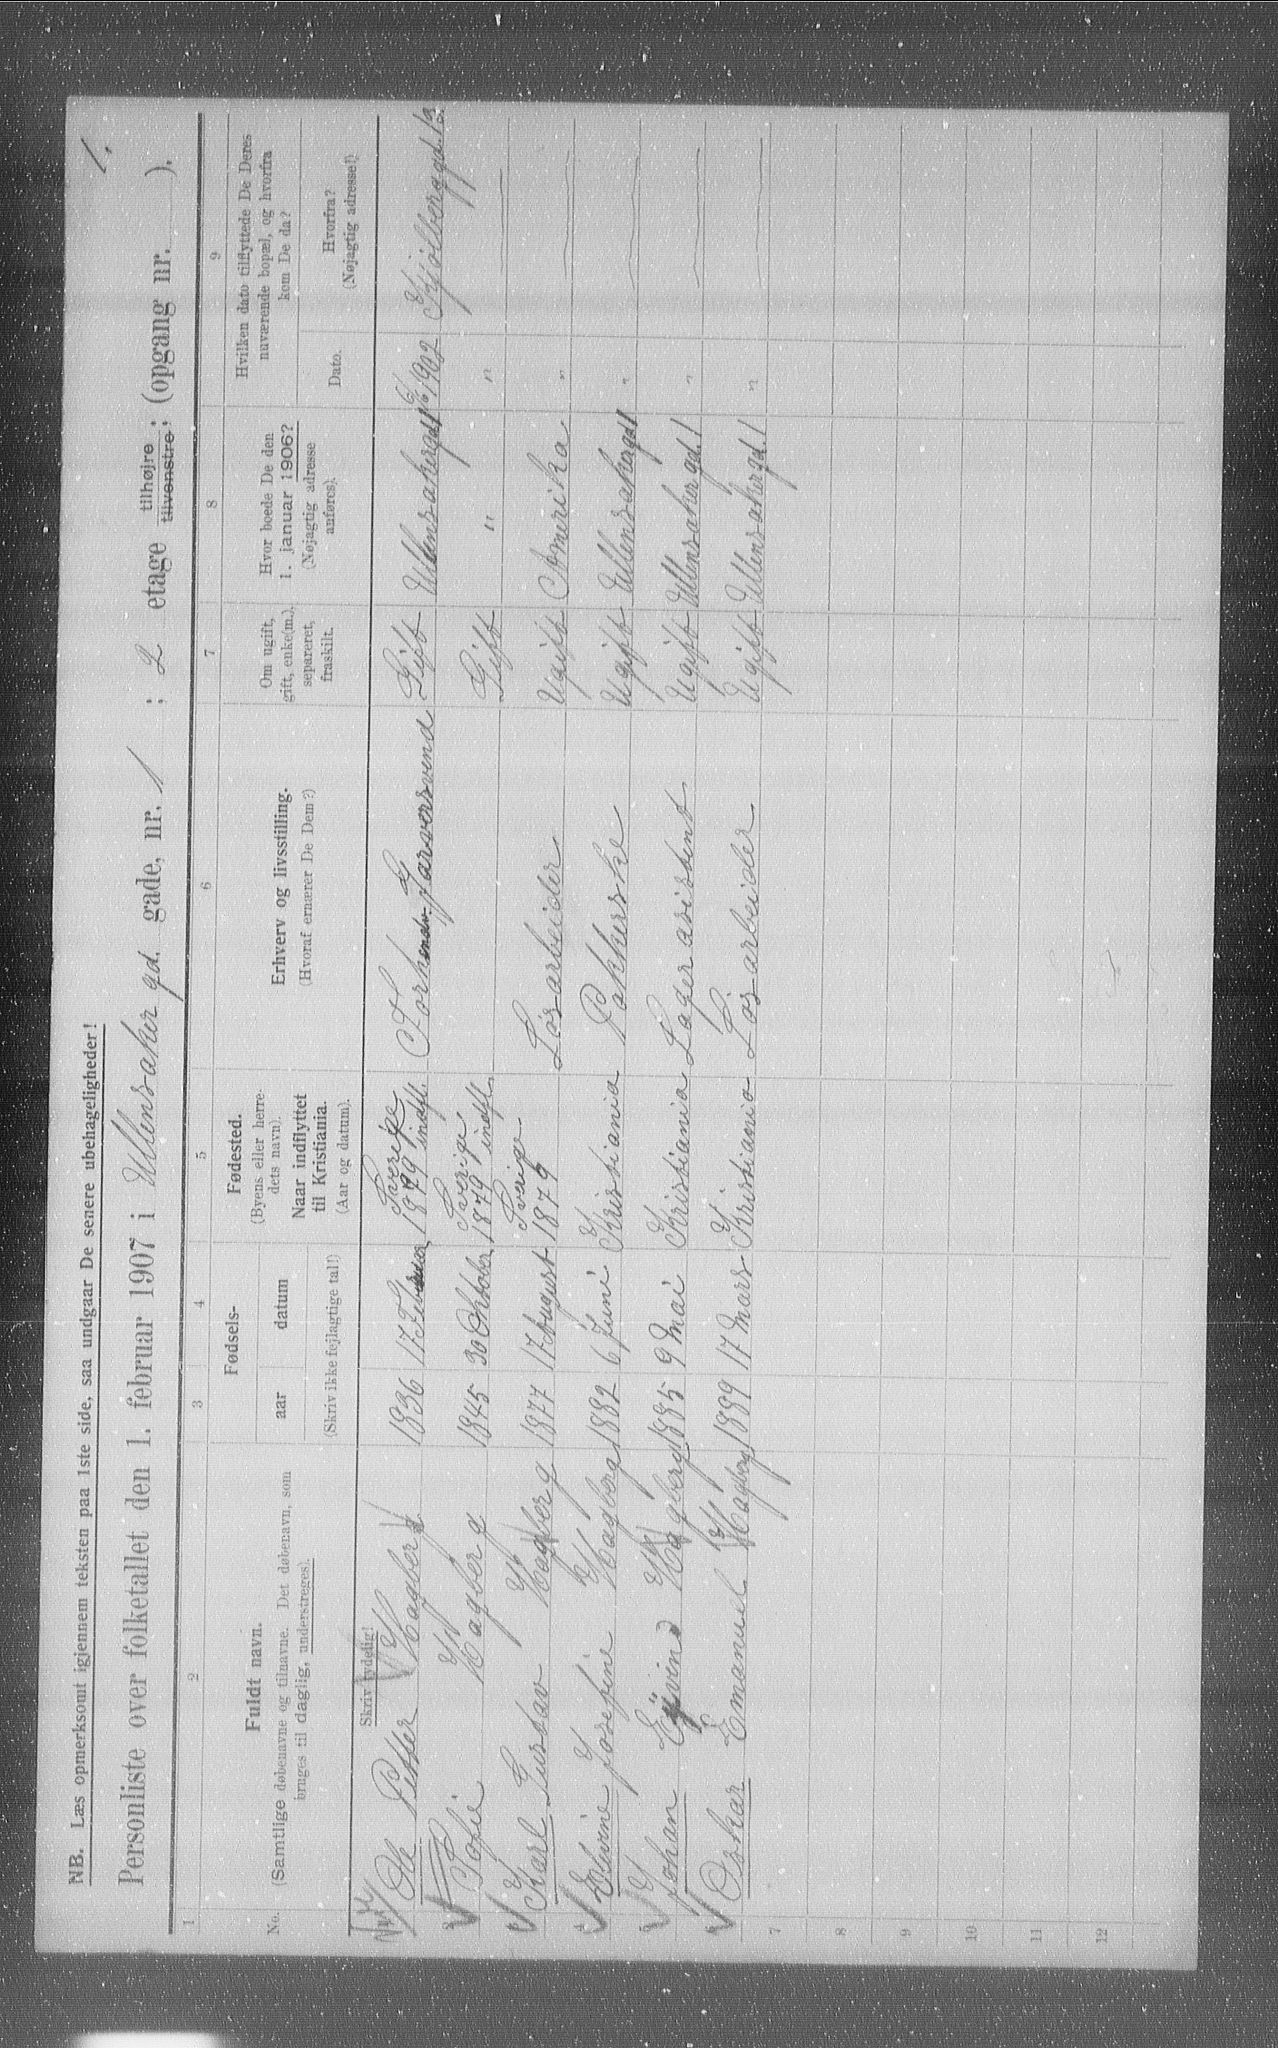 1.
NB. Læs opmerksomt igjennem teksten paa 1ste side, saa undgaar De senere ubehageligheder!
Personliste over folketallet den 1. februar 1907 i Ullensaker gd. gade, nr. 1 ; 2 etage tilhøjre, tilvenstre, (opgang nr. ).
1 2 3 4 5 6 7 8 9
No. Fuldt navn. (Samtlige døbenavne og tilnavne. Det døbenavn, som bruges til daglig, understreges).
Fødsels- aar datum (Skriv ikke fejlagtige tal!)
Fødested. (Byens eller herredets navn). Naar indflyttet til Kristiania. (Aar og datum).
Erhverv og livsstilling. (Hvoraf ernærer De Dem?)
Om ugift, gift, enke(m.), separeret, fraskilt.
Hvor boede De den 1. januar 1906? (Nøjagtig adresse anføres).
Hvilken dato tilflyttede De Deres nuværende bopæl, og hvorfra kom De da?
Dato. Hvorfra? (Nøjagtig adresse!)
Skriv tydelig!
Ole Petter Hagberg 1836 17 Februar Sverige 1879 indfl. Forh. Garversvend Gift Ullensakergd 1 1902 Kjølberggd. 13
Sofie Hagberg 1845 30 Oktober Sverige 1879 indfl. Gift " "
Karl Gustav Hagberg 1877 17 August Sverige 1879 Løsarbeider Ugift Amerika "
Elvine Josefine Hagberg 1882 6 Juni Kristiania Pakkerske Ugift Ullensakergd 1 "
Johan Eivind Hagberg 1885 9 Mai Kristiania Lagerasistent Ugift Ullensakergd. 1 "
Oskar Emanuel Hagberg 1889 17 Mars Kristiania Løsarbeider Ugift Ullensakergd. 1 "
7
8
9
10
11
12